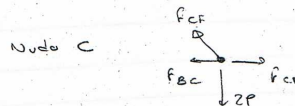 Nudo C
F_CF
F_BC
2P